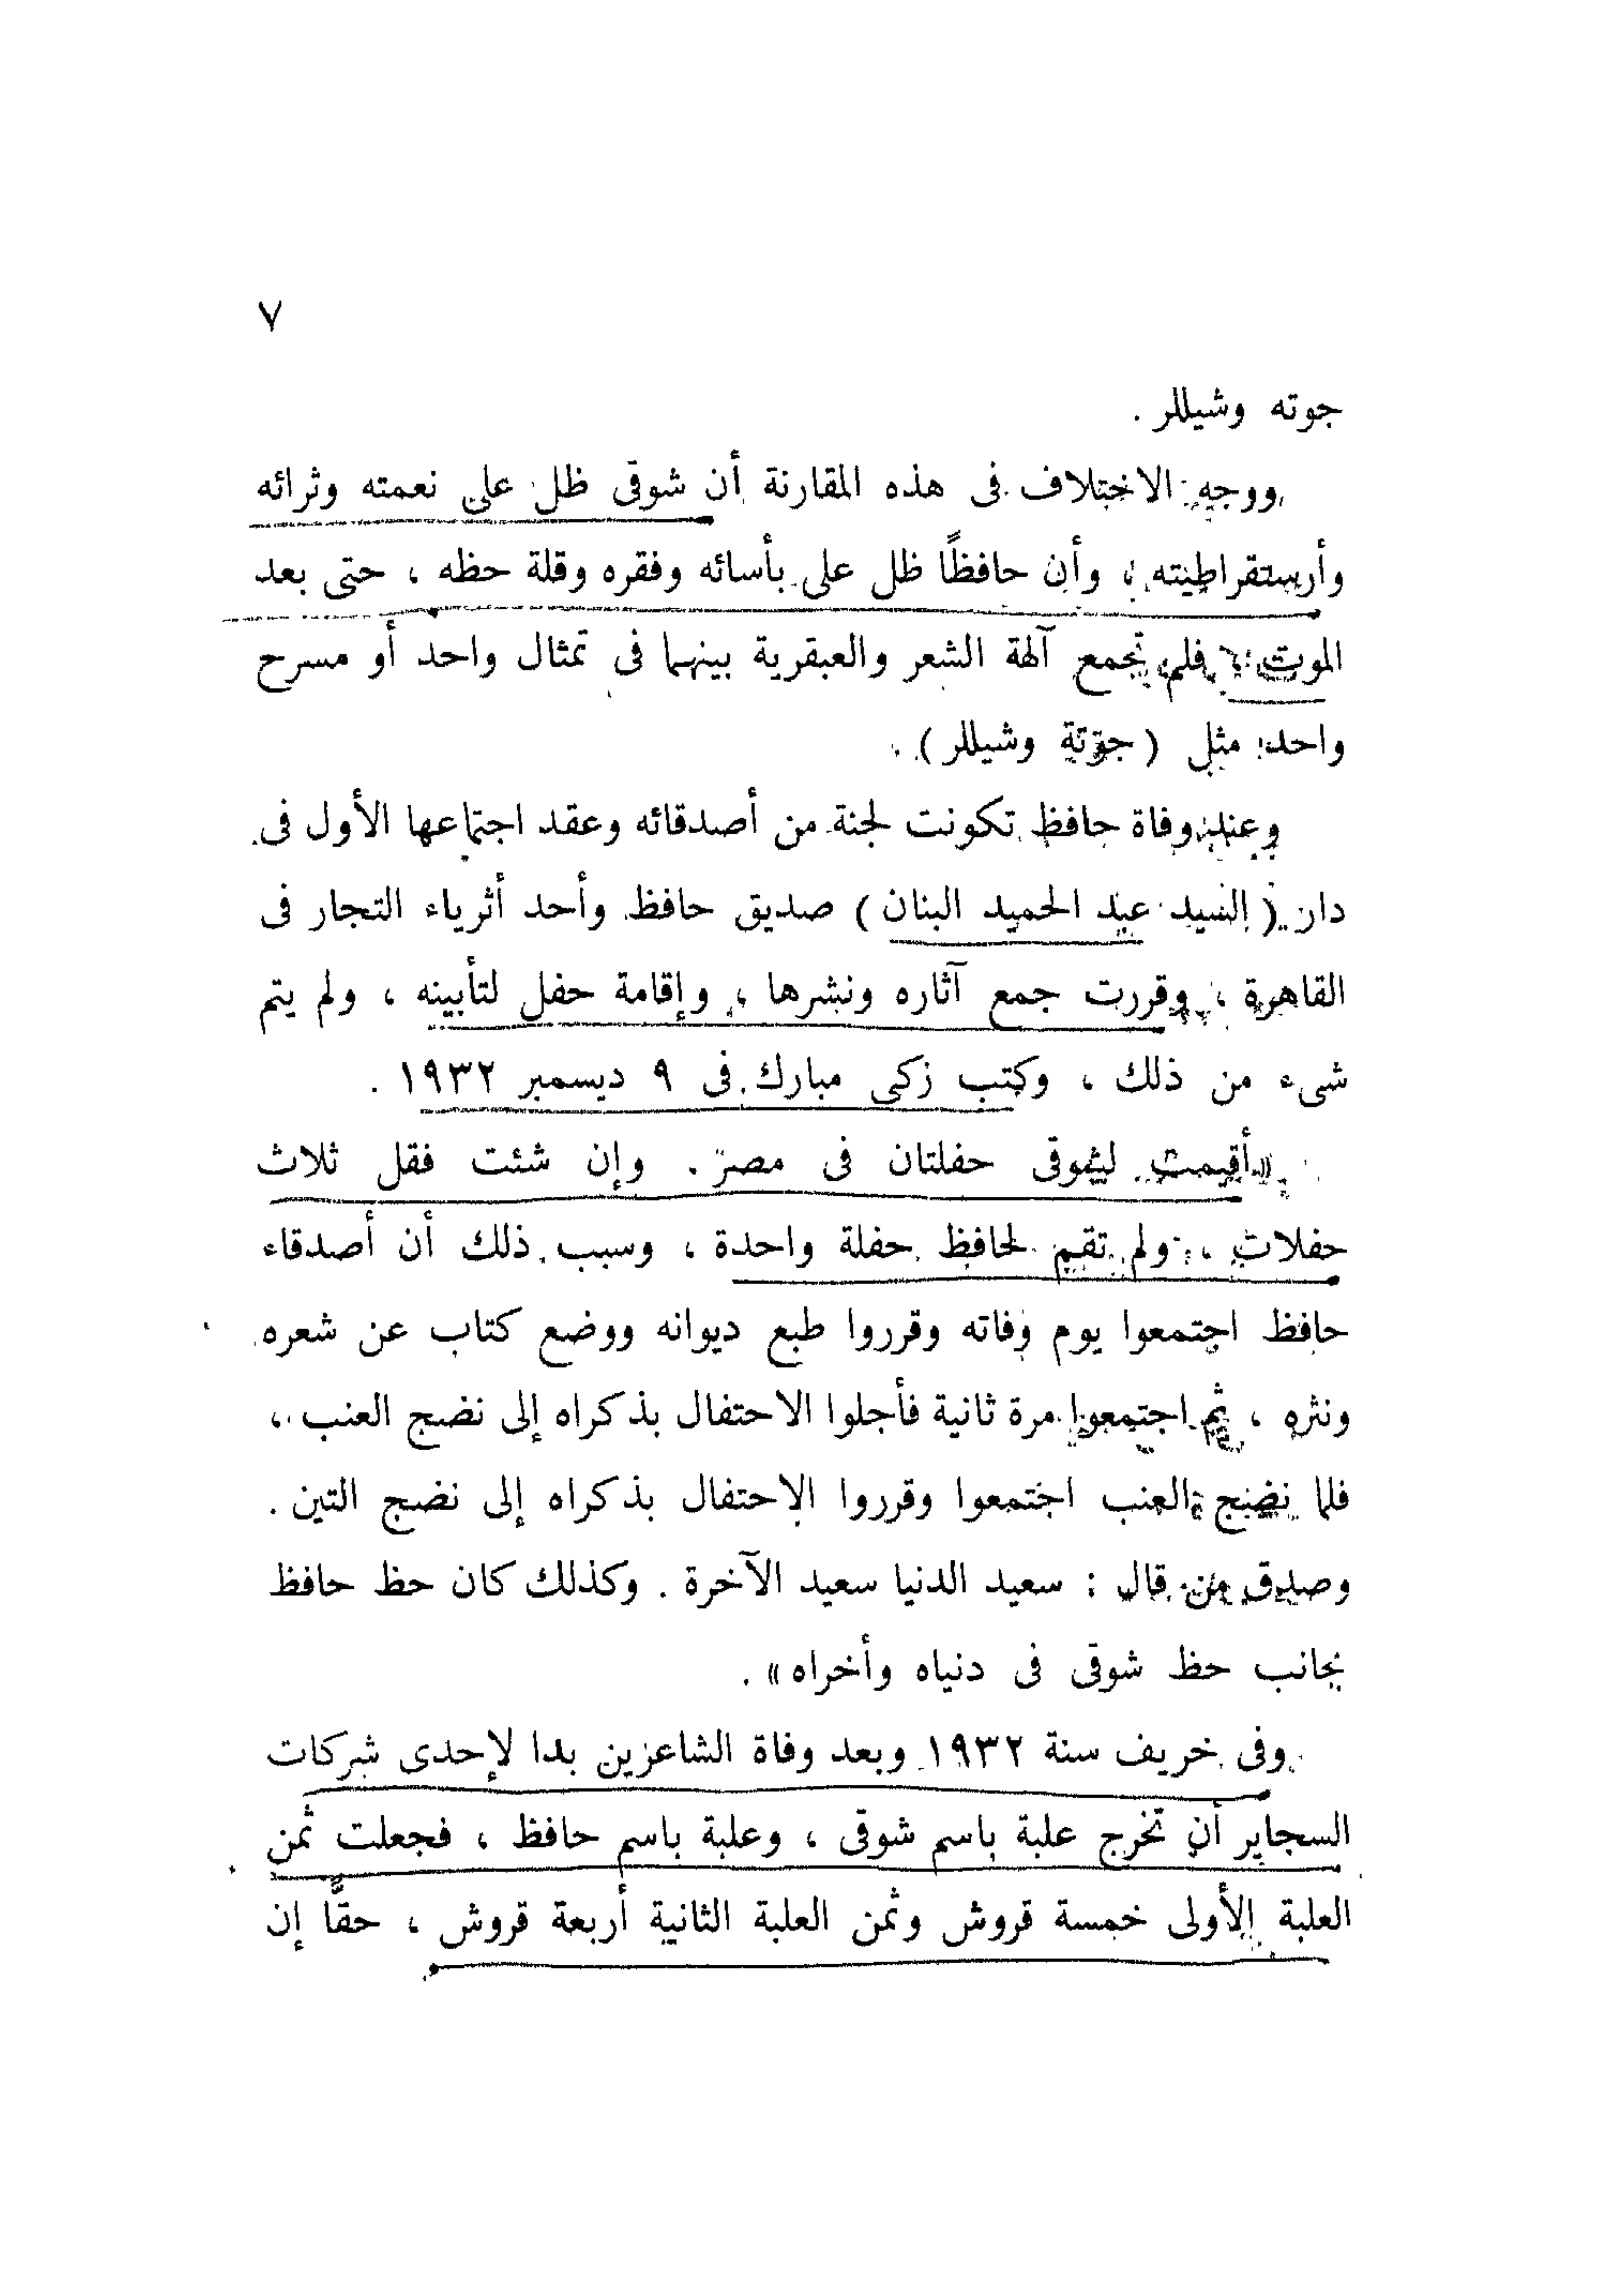 ٧
جوته وشيللر .
ووجه الاختلاف فى هذه المقارنة أن شوقى ظل على نعمته وثرائه
وأرستقراطيته ، وأن حافظًا ظل على بأسائه وفقره وقلة حظه ، حتى بعد
الموت ، فلم تجمع آلهة الشعر والعبقرية بينهما فى تمثال واحد أو مسرح
واحد مثل (جوتة وشيللر) .
وعند وفاة حافظ تكونت لجنة من أصدقائه وعقد اجتماعها الأول فى
دار (السيد عبد الحميد البنان) صديق حافظ وأحد أثرياء التجار فى
القاهرة ، وقررت جمع آثاره ونشرها ، وإقامة حفل لتأبينه ، ولم يتم
شىء من ذلك ، وكتب زكى مبارك فى ٩ ديسمبر ١٩٣٢ .
«أقيمت لشوقى حفلتان فى مصر . وإن شئت فقل ثلاث
حفلات ، ولم تقم لحافظ حفلة واحدة ، وسبب ذلك أن أصدقاء
حافظ اجتمعوا يوم وفاته وقرروا طبع ديوانه ووضع كتاب عن شعره
ونثره ، ثم اجتمعوا مرة ثانية فأجلوا الاحتفال بذكراه إلى نضج العنب ،
فلما نضج العنب اجتمعوا وقرروا الاحتفال بذكراه إلى نضج التين .
وصدق من قال : سعيد الدنيا سعيد الآخرة . وكذلك كان حظ حافظ
بجانب حظ شوقى فى دنياه وأخراه» .
وفى خريف سنة ١٩٣٢ وبعد وفاة الشاعرين بدا لإحدى شركات
السجاير أن تخرج علبة باسم شوقى ، وعلبة باسم حافظ ، فجعلت ثمن
العلبة الأولى خمسة قروش وثمن العلبة الثانية أربعة قروش ، حقًّا إن